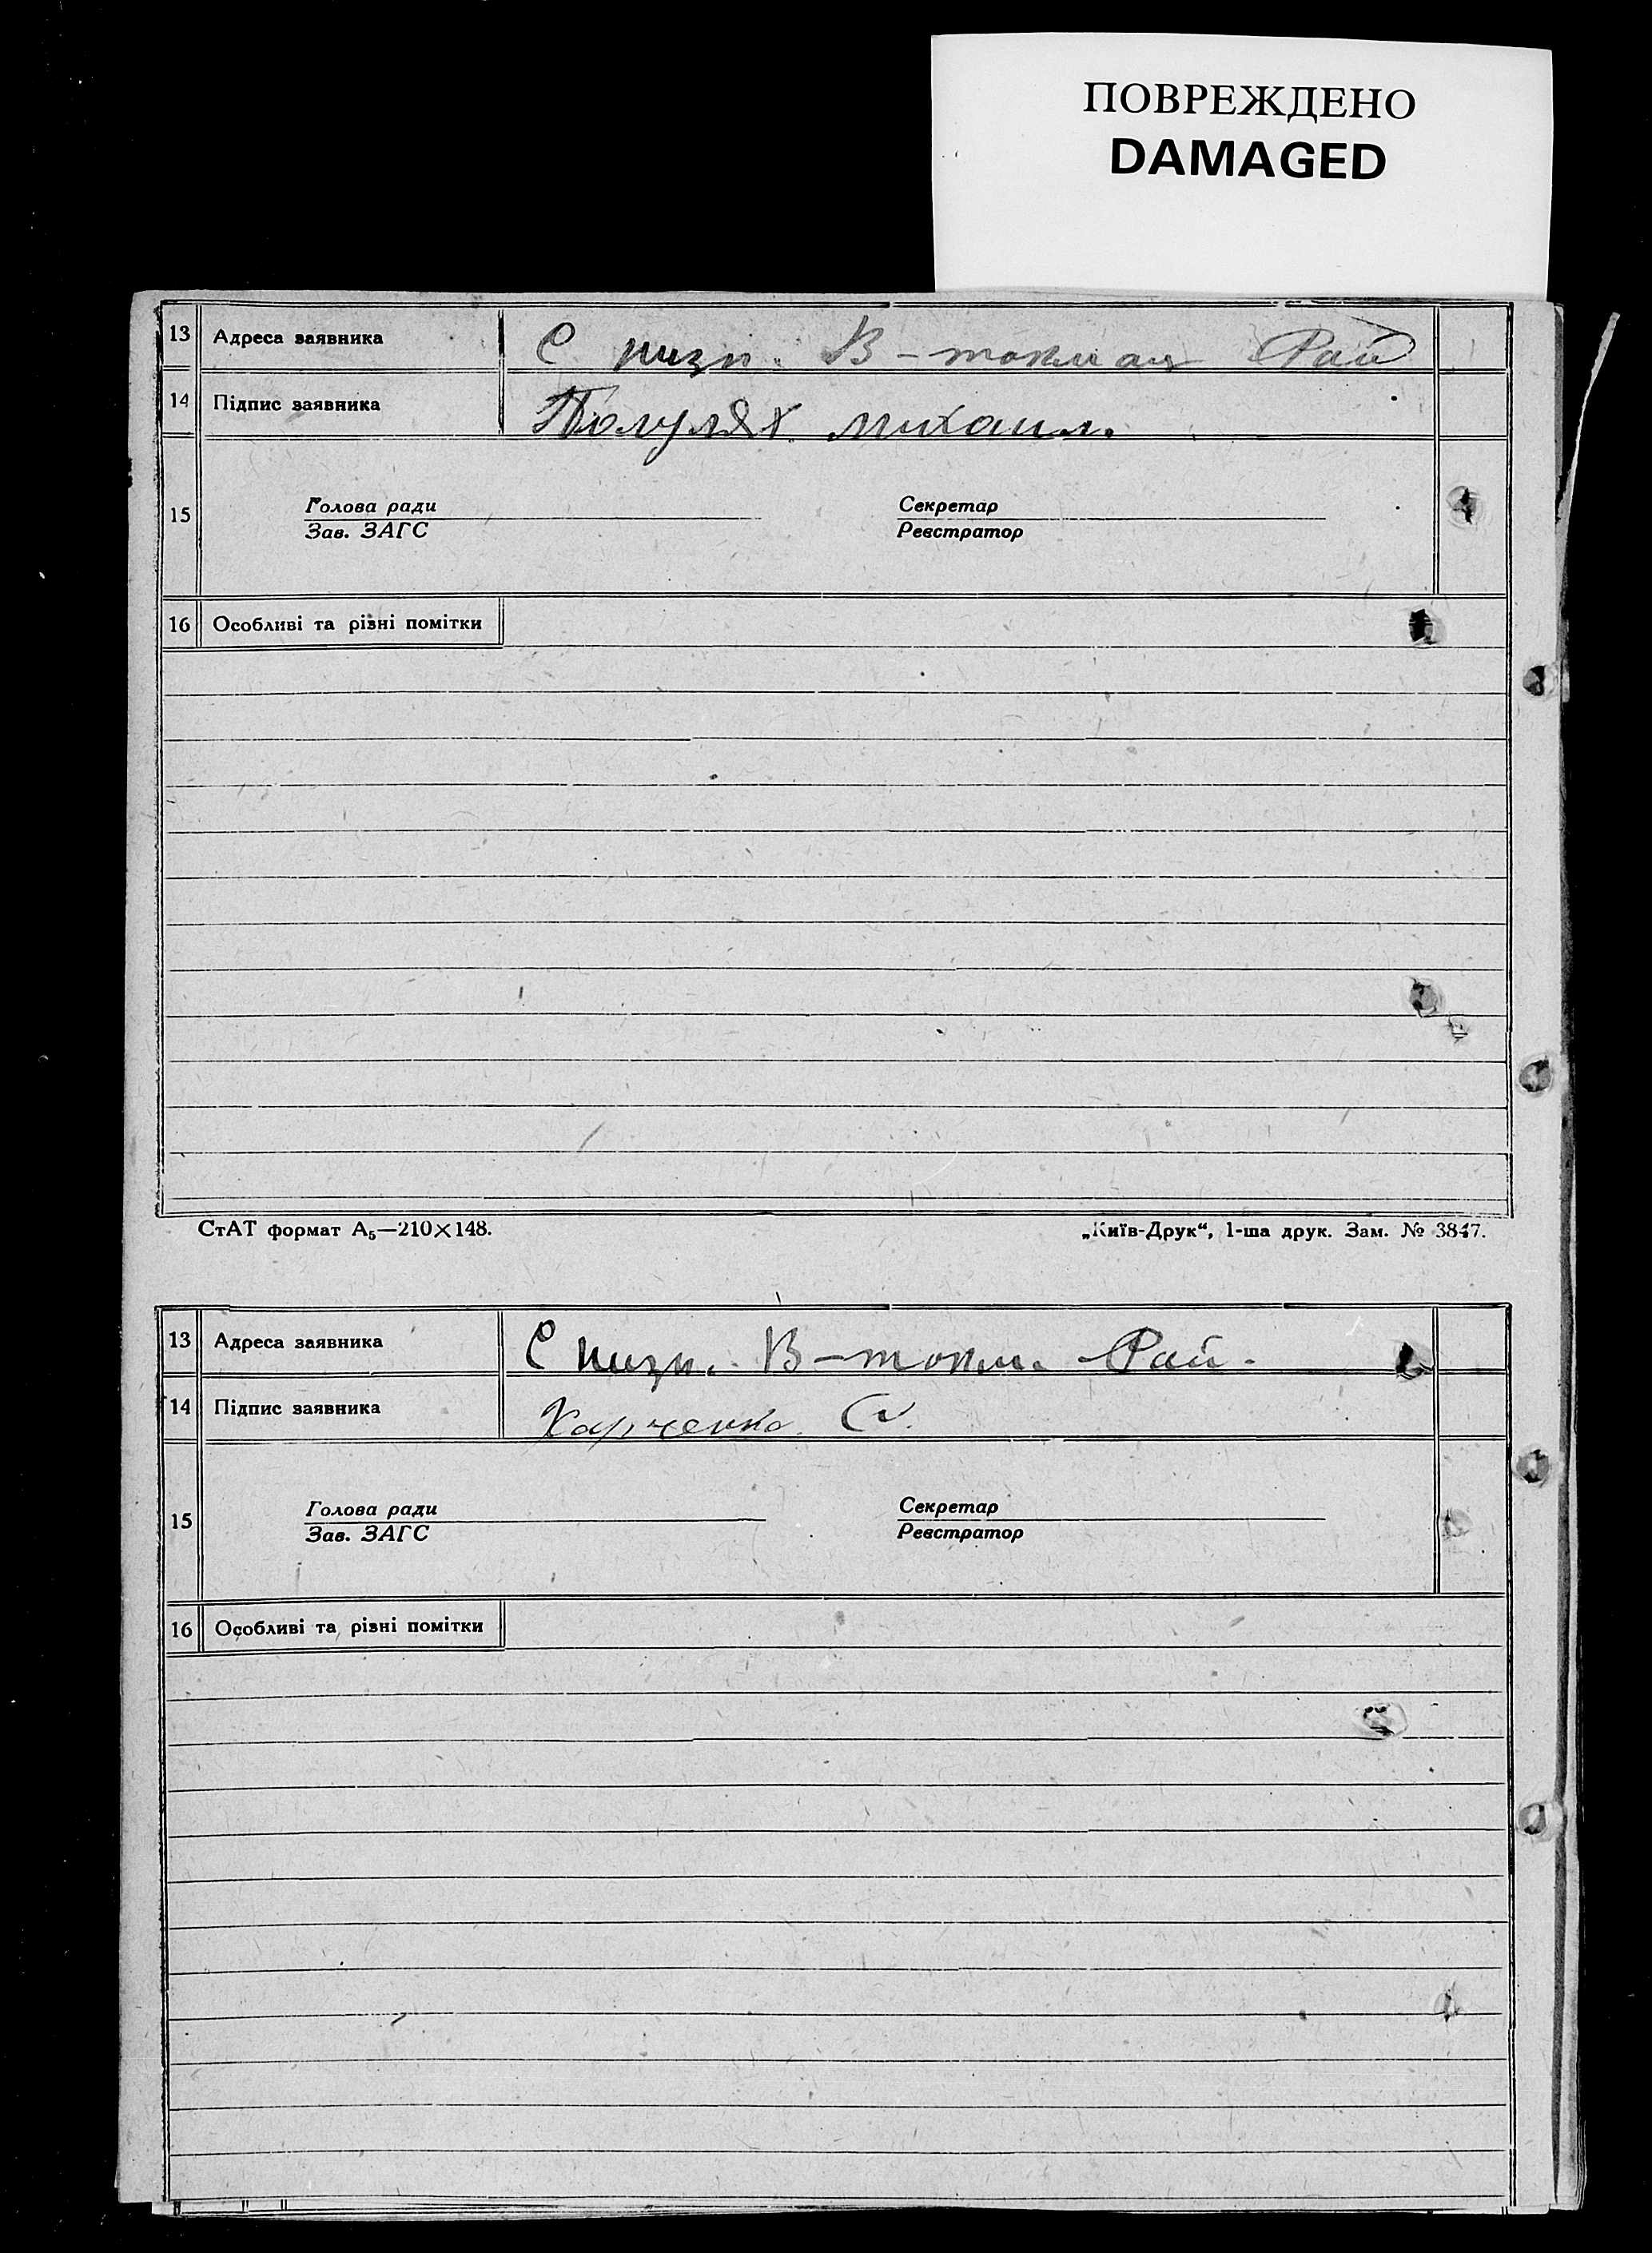 ПОВРЕЖДЕНО
DAMAGED
13 Адреса заявника С низп. В-токмак Рай
14 Підпис заявника Полулях михаил.
15 Голова ради Секретар
Зав. ЗАГС Реєстратор
16 Особливі та різні помітки
СтАТ формат А₅—210×148. „Київ-Друк“, 1-ша друк. Зам. № 3847.
13 Адреса заявника С низп. В-токм. Рай.
14 Підпис заявника Харченко С.
15 Голова ради Секретар
Зав. ЗАГС Реєстратор
16 Особливі та різні помітки